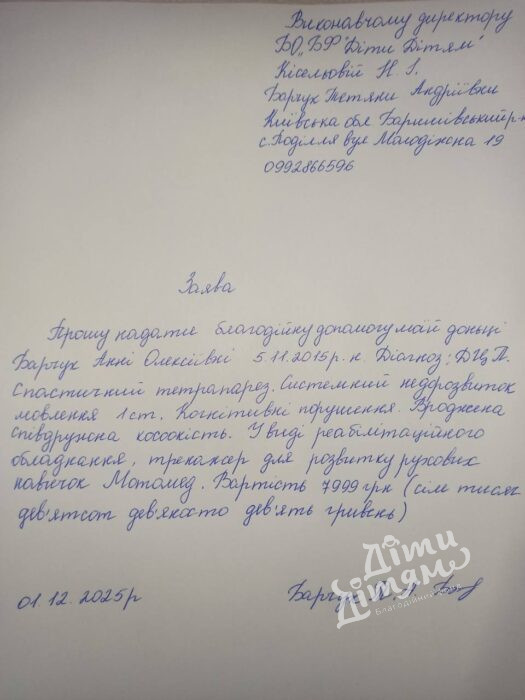 Виконавчому директору
БО „БФ "Діти Дітям"
Кісельовій Н. І.
Барчук Тетяни Андріївни
Київська обл Баришівський р-н
с. Поділля вул Молодіжна 19
0992866596
Заява
Прошу надати благодійну допомогу моїй доньці
Барчук Анні Олексіївні 5.11.2015р.н. Діагноз: ДЦП.
Спастичний тетрапарез. Системний недорозвиток
мовлення 1 ст. Когнітивні порушення. Вроджена
співдружна косоокість. У виді реабілітаційного
обладнання, тренажер для розвитку рухових
навичок Мотомед. Вартість 7999 грн (сім тисяч
дев'ятсот дев'яносто дев'ять гривень)
Діти
Дітям
Благодійний
01.12.2025р Барчук